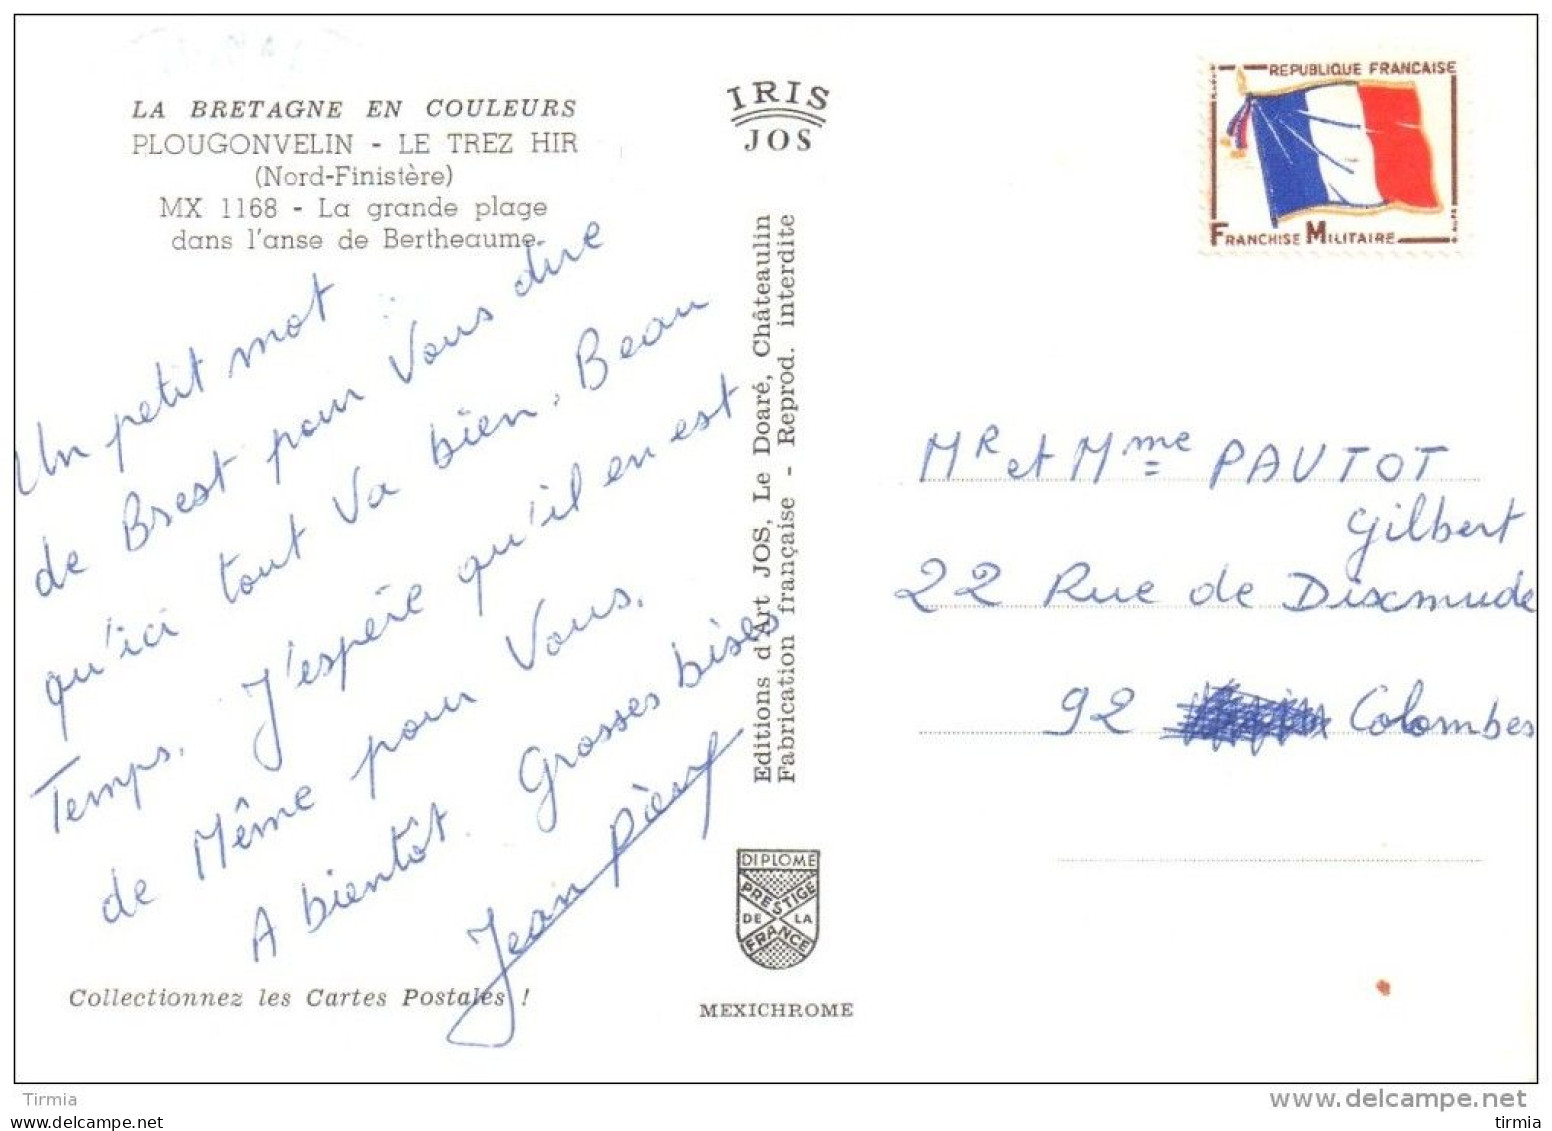 LA BRETAGNE EN COULEURS
PLOUGONVELIN - LE TREZ HIR
(Nord-Finistère)
MX 1168 - La grande plage
dans l'anse de Bertheaume.
Un petit mot
de Brest pour Vous dire
qu'ici tout Va bien. Beau
Temps. J'espère qu'il en est
de Même pour Vous.
A bientôt. Grosses bises
Jean Pierre
Collectionnez les Cartes Postales !
IRIS
JOS
Editions d'Art JOS, Le Doaré, Châteaulin
Fabrication française - Reprod. interdite
DIPLOME
PRESTIGE
DE LA
FRANCE
MEXICHROME
REPUBLIQUE FRANCAISE
FRANCHISE MILITAIRE
MR et Mme PAUTOT
Gilbert
22 Rue de Dixmude
92 Colombes
Tirmia
delcampe.net
tirmia
tirmia